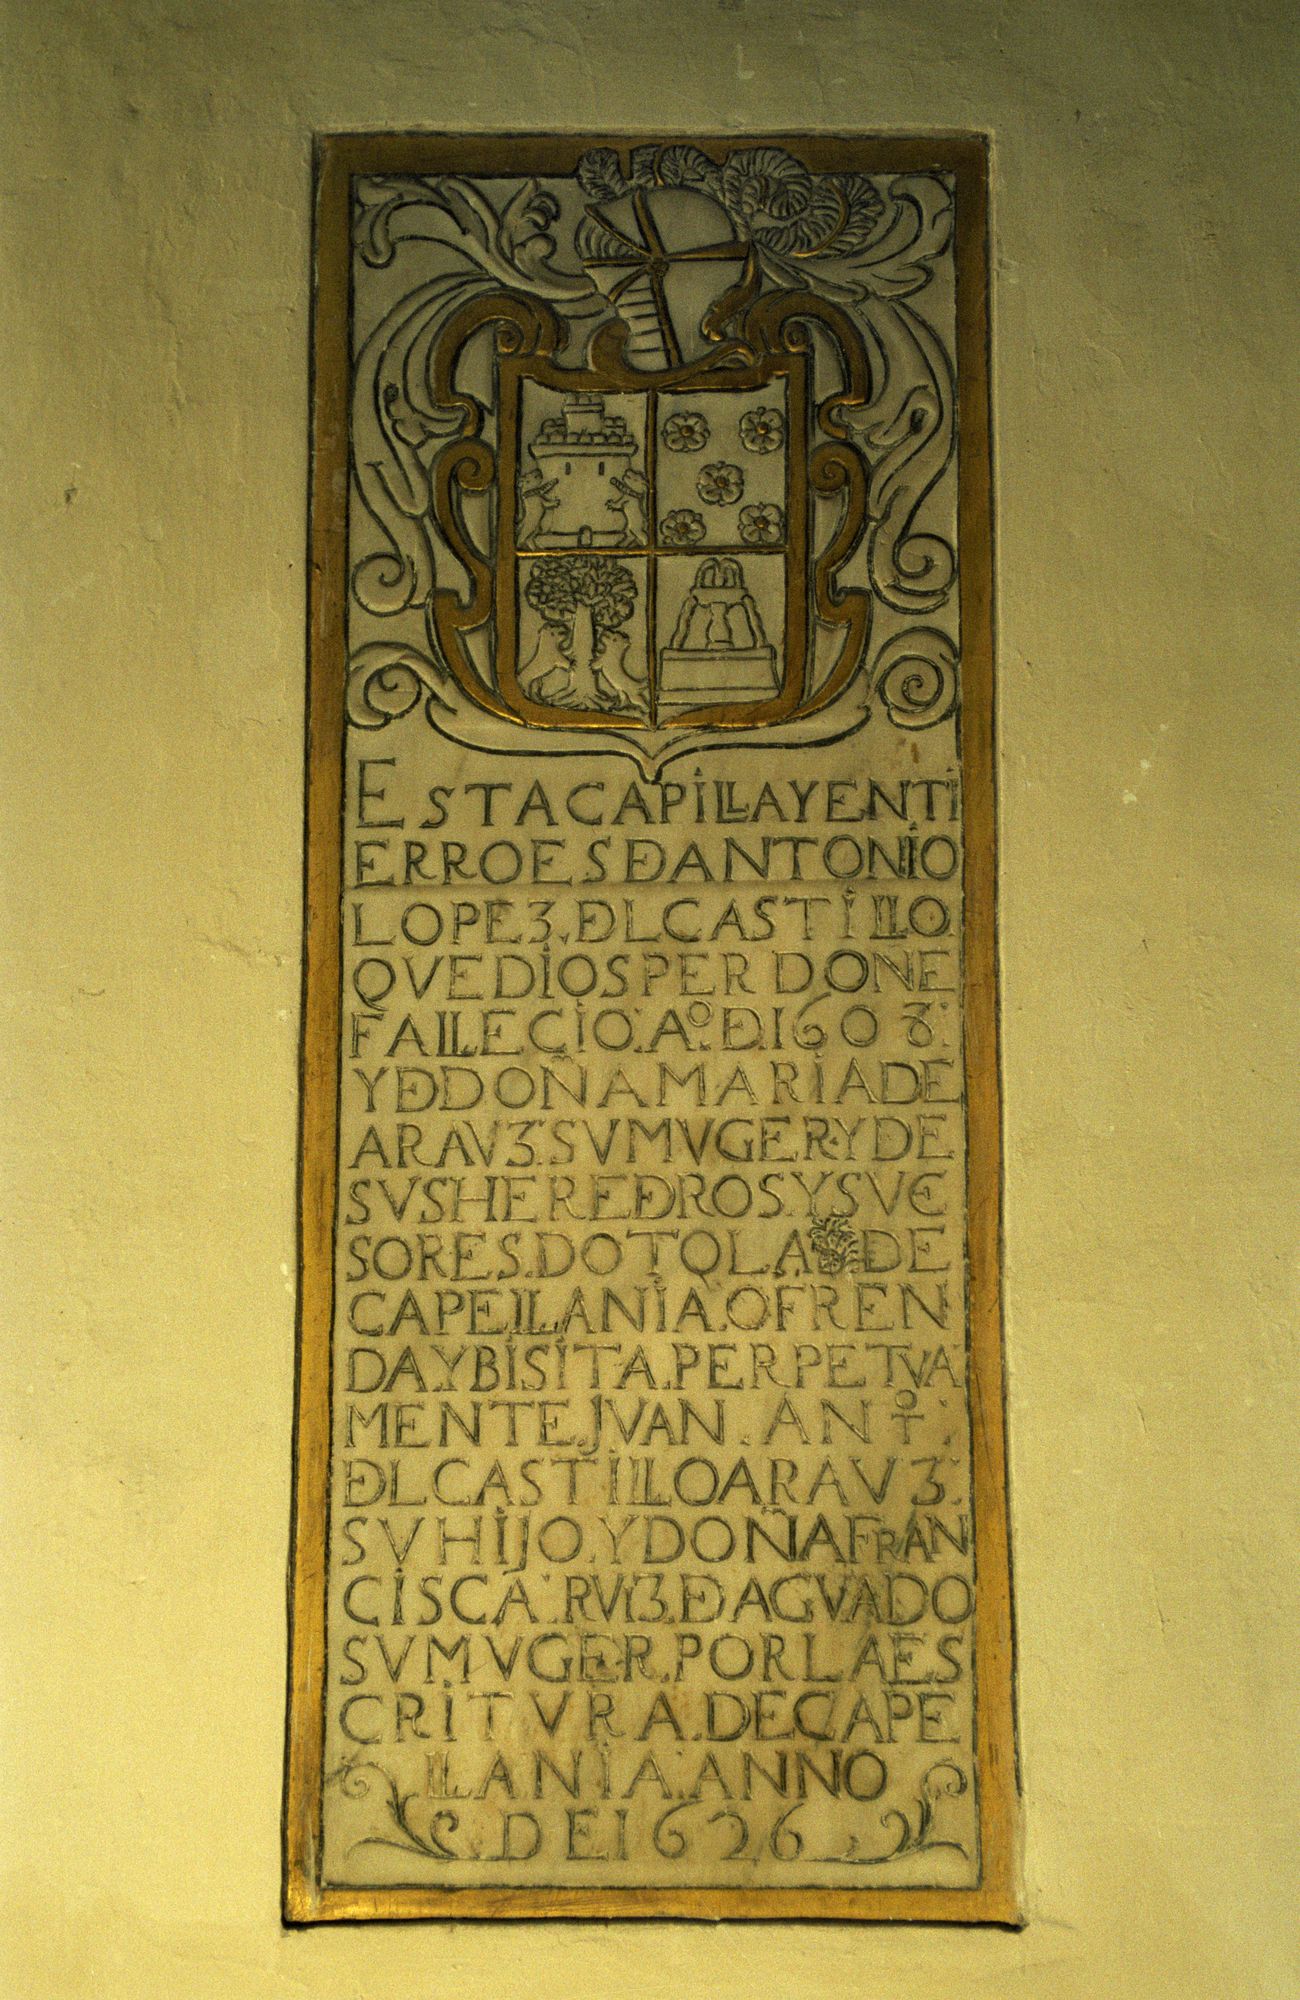 ESTACAPILLAYENTI
ERROESDEANTONIO
LOPEZ.DELCASTILLO
QVEDIOSPERDONE
FALLECIO.Aº.DE.1608.
YDEDOÑAMARIADE
ARAVZ.SVMVGER.YDE
SVSHEREDEROS.YSVCE
SORES.DOTOLA DE
CAPELLANIA.OFREN
DA.YBISITA.PERPETVA
MENTE.JVAN.ANTº.
DELCASTILLOARAVZ.
SVHIJO.YDOÑAFRAN
CISCA.RVIZ.DEAGVADO
SVMVGER.PORLAES
CRITVRA.DECAPE
LLANIA.ANNO
.DE1626